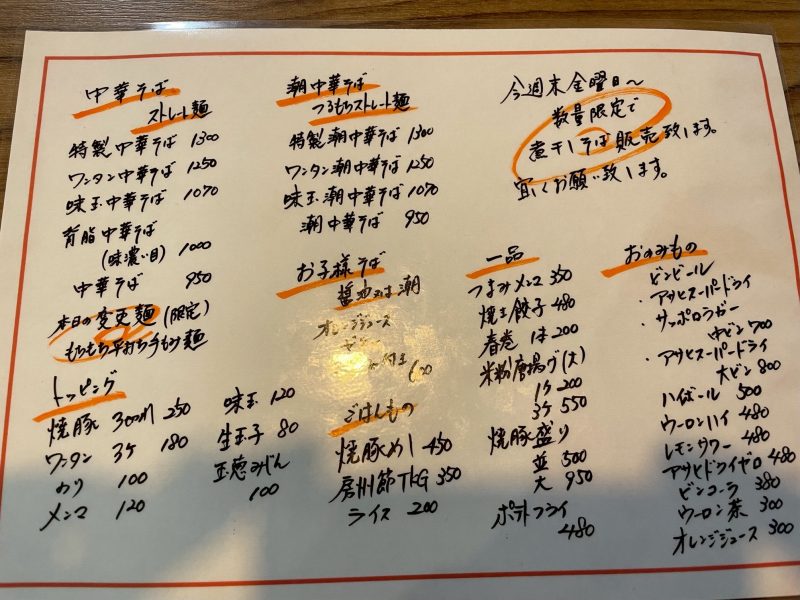 中華そば
ストレート麺
特製中華そば 1300
ワンタン中華そば 1250
味玉中華そば 1070
背脂中華そば
(味濃い目) 1000
中華そば 950
本日の変更麺 (限定)
もちもち平打ち手もみ麺
潮中華そば
つるもちストレート麺
特製潮中華そば 1300
ワンタン潮中華そば 1250
味玉潮中華そば 1070
潮中華そば 950
今週末金曜日〜
数量限定で
煮干しそば販売致します。
宜しくお願い致します。
お子様そば
醤油又は潮
オレンジジュース
ゼリー
付き
600
トッピング
焼豚 3000川 250
ワンタン 3ケ 180
のり 100
メンマ 120
味玉 120
生玉子 80
玉葱みじん
100
ごはんもの
焼豚めし 450
房州節TKG 350
ライス 200
一品
つまみメンマ 350
焼き餃子 480
春巻 1本 200
米粉唐揚げ(大)
1ケ 200
3ケ 550
焼豚盛り
並 500
大 950
ポテトフライ
480
おのみもの
ビンビール
・アサヒスーパードライ
・サッポロラガー
中ビン 700
・アサヒスーパードライ
大ビン 800
ハイボール 500
ウーロンハイ 480
レモンサワー 480
アサヒドライゼロ 480
ビンコーラ 380
ウーロン茶 300
オレンジジュース 300